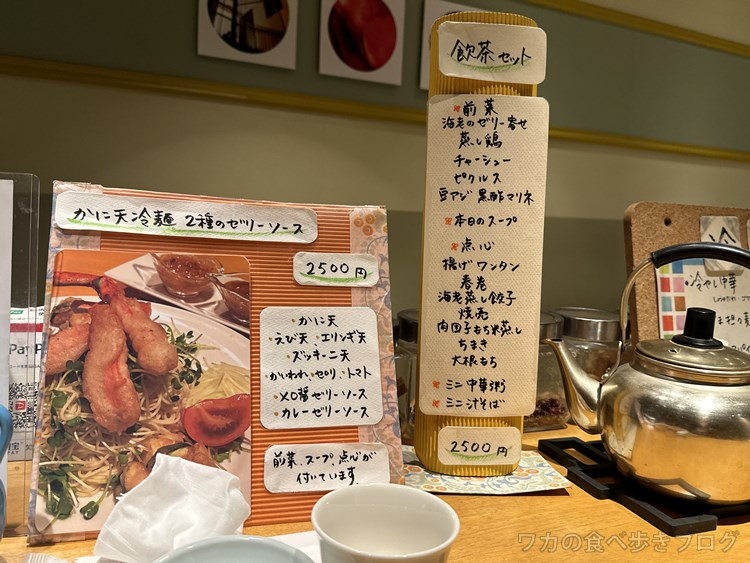 かに天冷麺 2種のゼリーソース
2500円
・かに天
・えび天・エリンギ天
・ズッキーニ天
・かいわれ・セロリ・トマト
・XO醤ゼリーソース
・カレーゼリーソース
前菜、スープ、点心が
付いています
飲茶セット
前菜
海老のゼリー寄せ
蒸し鶏
チャーシュー
ピクルス
豆アジ黒酢マリネ
本日のスープ
点心
揚げワンタン
春巻
海老蒸し餃子
焼売
肉団子もち米蒸し
ちまき
大根もち
ミニ中華粥
ミニ汁そば
2500円
冷
・冷やし中華
Pay
ワカの食べ歩きブログ